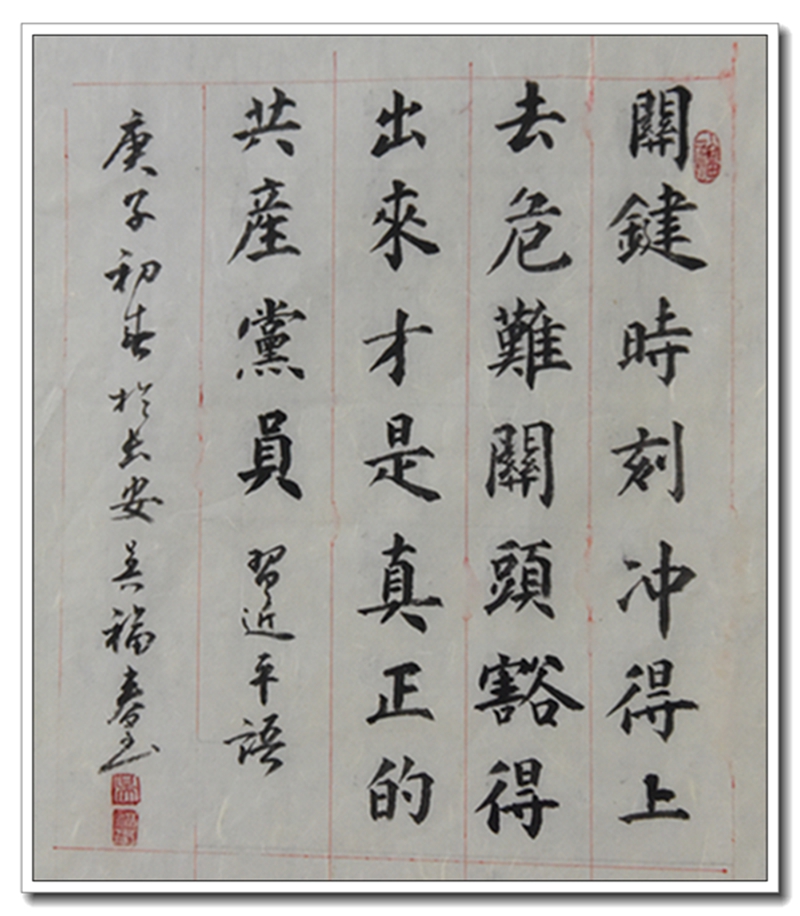 關鍵時刻冲得上
去危難關頭豁得
出來才是真正的
共産黨員 習近平語
庚子初春於長安吴福春書